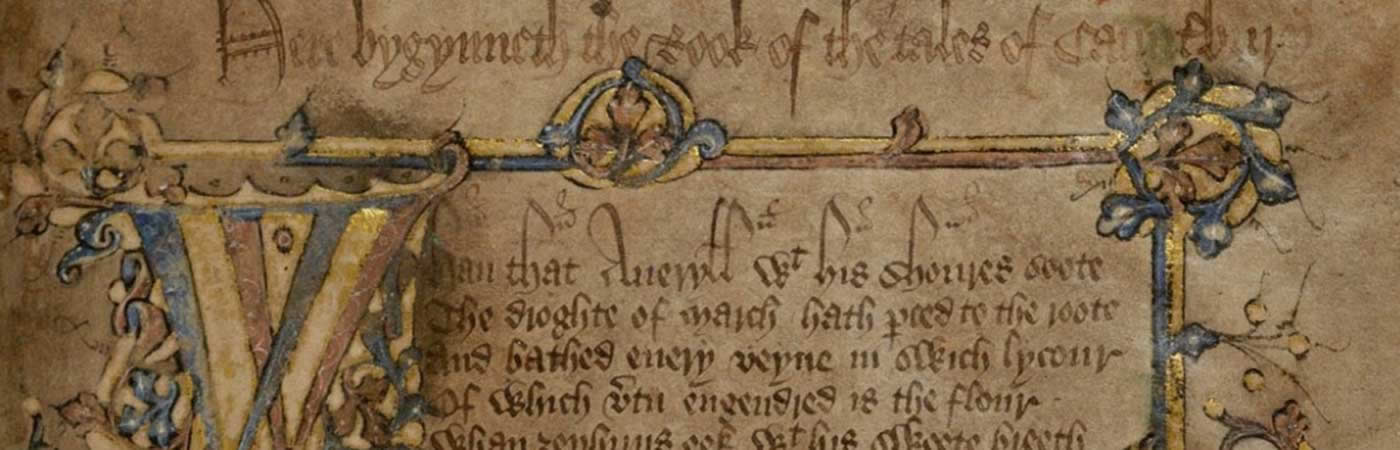 Here bygynneth the Book of the tales of Caunterbury
Whan that Aueryll wt his shoures soote
The droghte of march hath pced to the roote
And bathed euery veyne in swich lycour
Of which vtu engendred is the flour
Whan zephirus eek wt his swete breeth